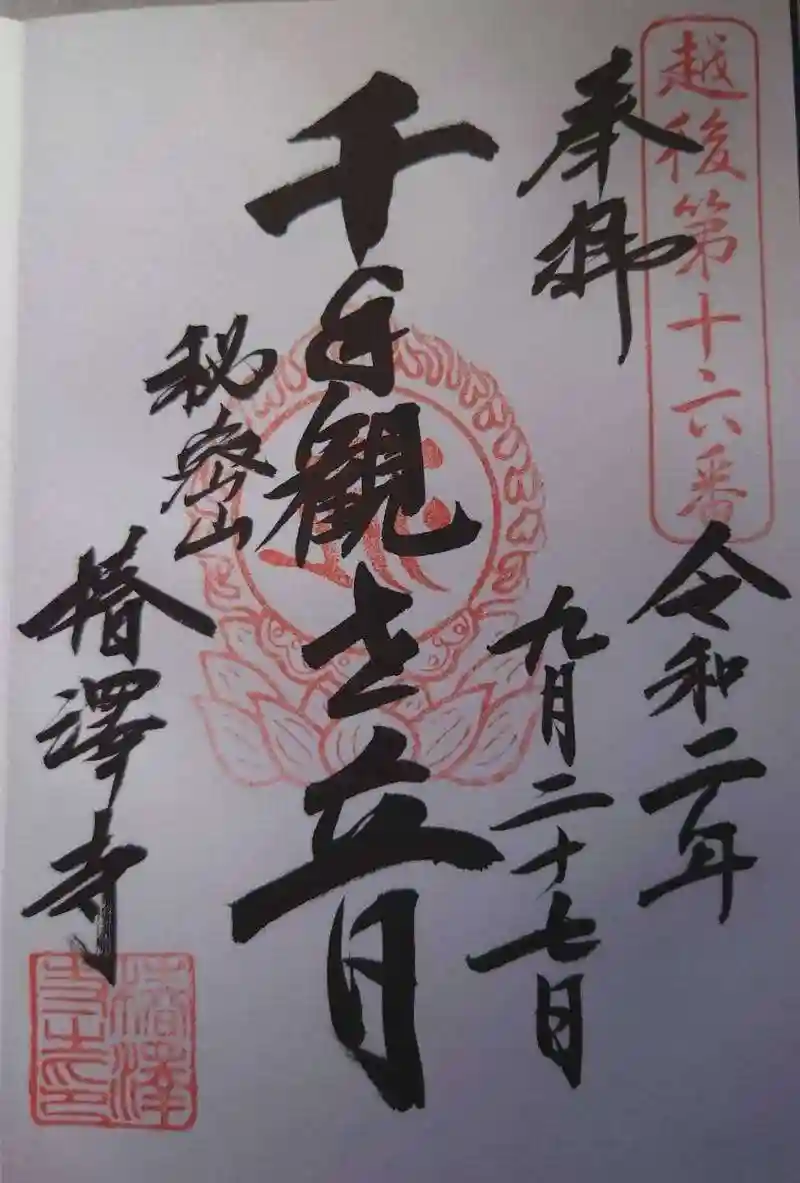 越後第十六番
奉拝
令和二年
九月二十七日
千手観世音
秘密山
椿澤寺
椿澤
寺印